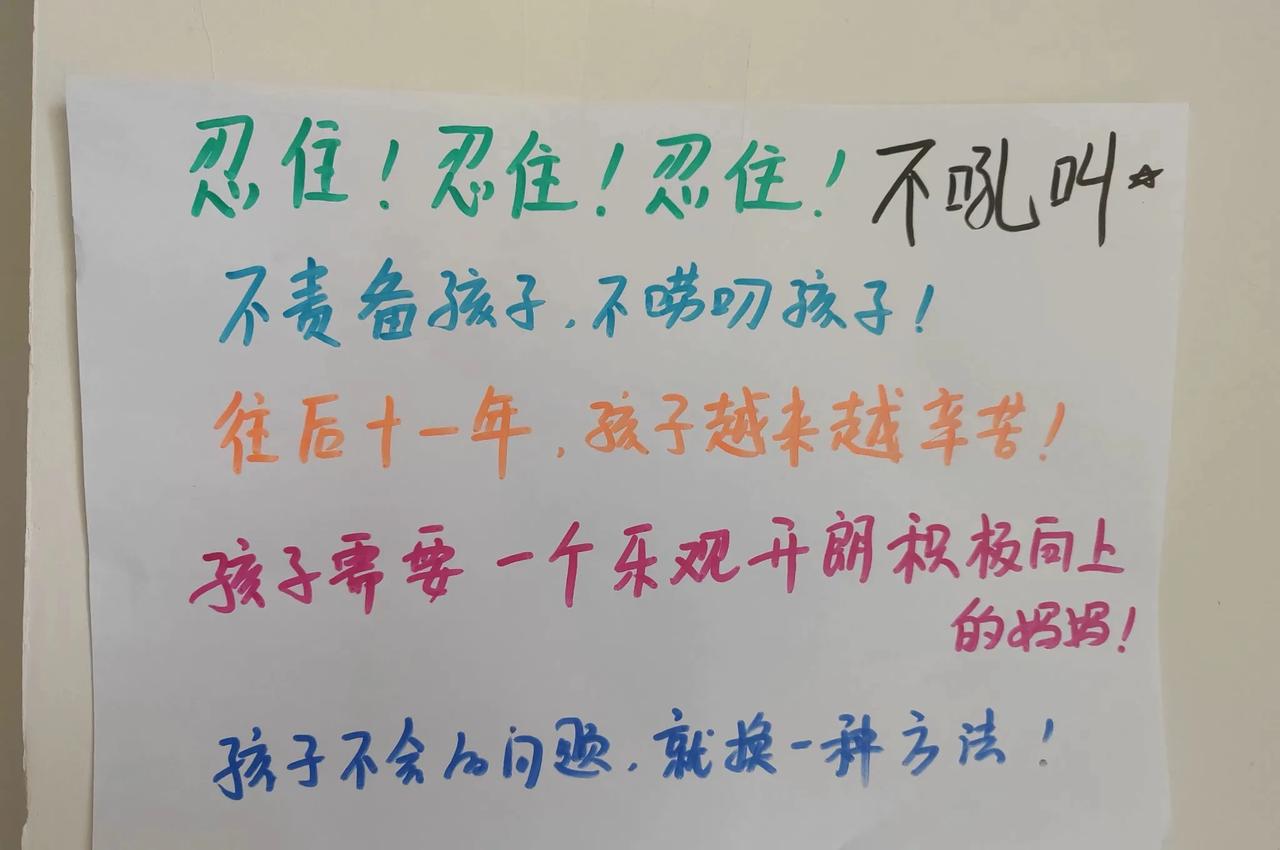 忍住!忍住!忍住!不吼叫☆
不责备孩子,不唠叨孩子!
往后十一年,孩子越来越辛苦!
孩子需要一个乐观开朗积极向上
的妈妈!
孩子不会的问题,就换一种方法!